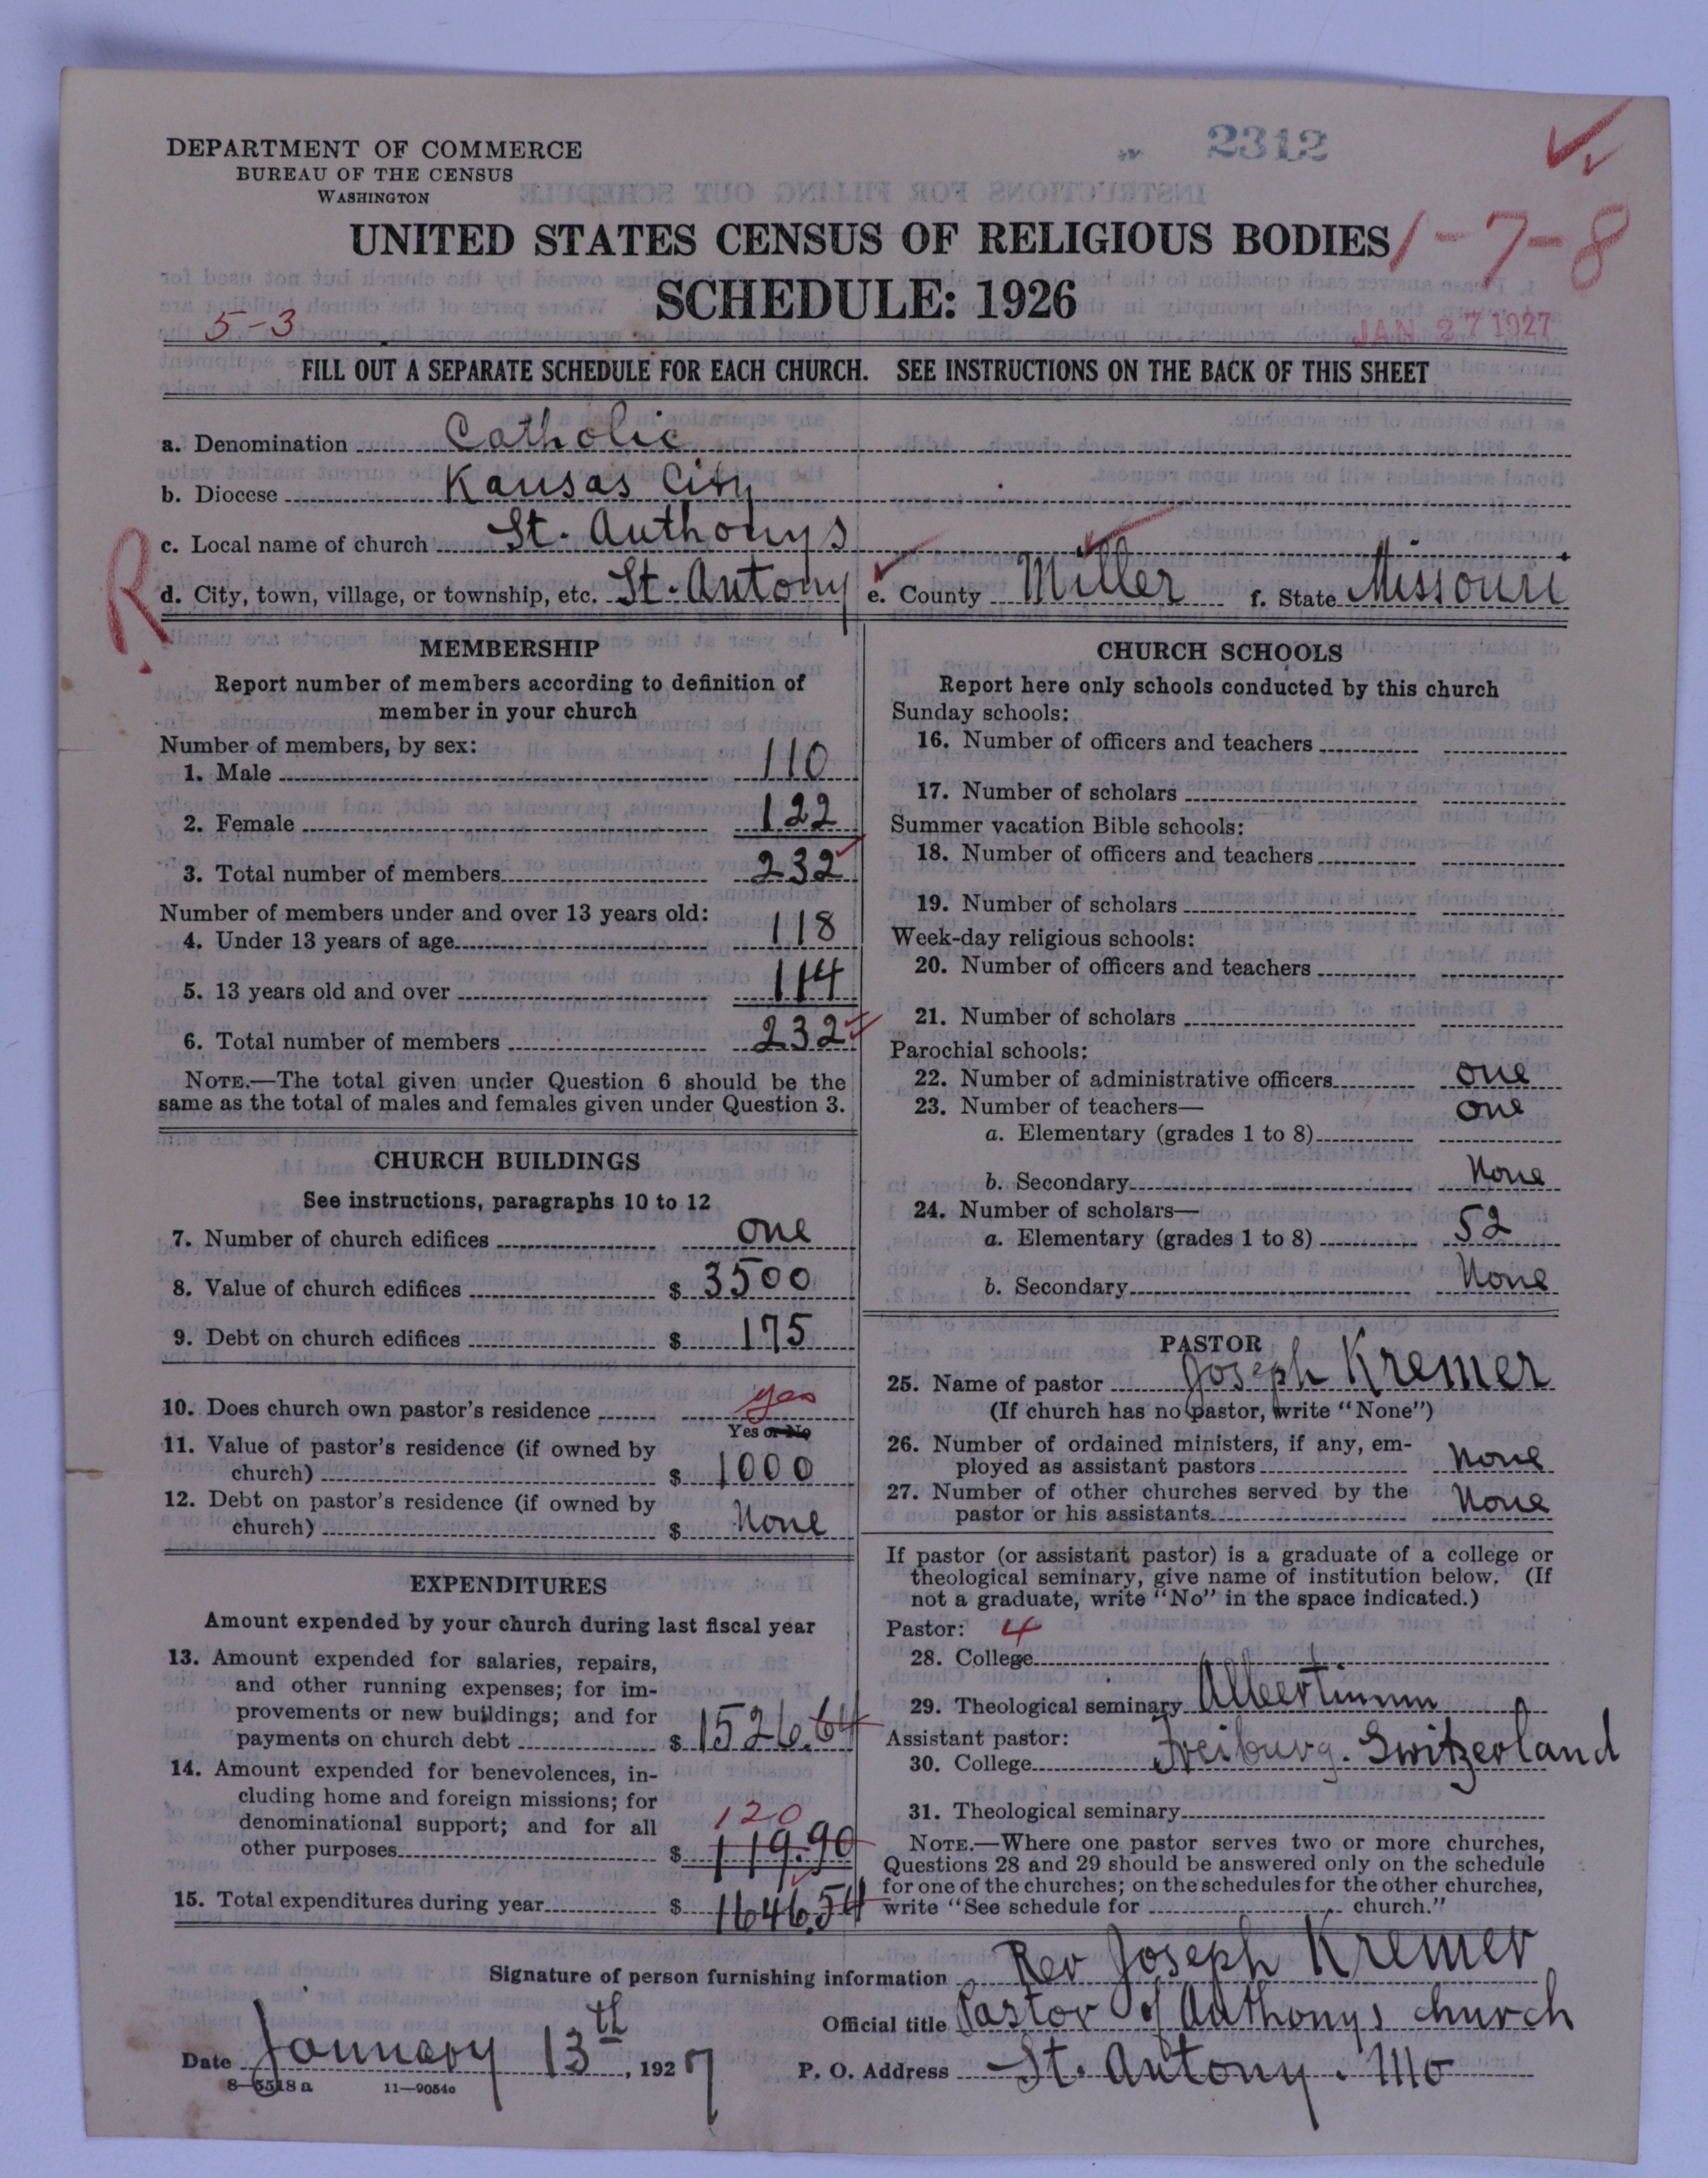 DEPARTMENT OF COMMERCE
BUREAU OF THE CENSUS
WASHINGTON
2312
1-7-8
UNITED STATES CENSUS OF RELIGIOUS BODIES
SCHEDULE: 1926
5-3
JAN 27 1927
FILL OUT A SEPARATE SCHEDULE FOR EACH CHURCH. SEE INSTRUCTIONS ON THE BACK OF THIS SHEET
a. Denomination Catholic
b. Diocese Kansas City
c. Local name of church St. Anthonys
R
d. City, town, village, or township, etc. St. Antony e. County Miller f. State Missouri
MEMBERSHIP
Report number of members according to definition of
member in your church
Number of members, by sex:
1. Male 110
2. Female 122
3. Total number of members 232
Number of members under and over 13 years old:
4. Under 13 years of age 118
5. 13 years old and over 114
6. Total number of members 232
NOTE.—The total given under Question 6 should be the
same as the total of males and females given under Question 3.
CHURCH BUILDINGS
See instructions, paragraphs 10 to 12
7. Number of church edifices one
8. Value of church edifices $ 3500
9. Debt on church edifices $ 175
10. Does church own pastor's residence yes
Yes or No
11. Value of pastor's residence (if owned by
church) $ 1000
12. Debt on pastor's residence (if owned by
church) $ None
EXPENDITURES
Amount expended by your church during last fiscal year
13. Amount expended for salaries, repairs,
and other running expenses; for im-
provements or new buildings; and for
payments on church debt $ 1526.64
14. Amount expended for benevolences, in-
cluding home and foreign missions; for
denominational support; and for all
120
other purposes $ 119.90
15. Total expenditures during year $ 1646.54
CHURCH SCHOOLS
Report here only schools conducted by this church
Sunday schools:
16. Number of officers and teachers
17. Number of scholars
Summer vacation Bible schools:
18. Number of officers and teachers
19. Number of scholars
Week-day religious schools:
20. Number of officers and teachers
21. Number of scholars
Parochial schools:
22. Number of administrative officers one
23. Number of teachers— one
a. Elementary (grades 1 to 8)
b. Secondary None
24. Number of scholars—
a. Elementary (grades 1 to 8) 52
b. Secondary None
PASTOR
25. Name of pastor Joseph Kremer
(If church has no pastor, write "None")
26. Number of ordained ministers, if any, em-
ployed as assistant pastors None
27. Number of other churches served by the
pastor or his assistants None
If pastor (or assistant pastor) is a graduate of a college or
theological seminary, give name of institution below. (If
not a graduate, write "No" in the space indicated.)
Pastor: 4
28. College
29. Theological seminary Albertinum
Assistant pastor: Freiburg. Switzerland
30. College
31. Theological seminary
NOTE.—Where one pastor serves two or more churches,
Questions 28 and 29 should be answered only on the schedule
for one of the churches; on the schedules for the other churches,
write "See schedule for church."
Signature of person furnishing information Rev Joseph Kremer
Official title Pastor of Anthonys church
Date January 13th, 1927 P. O. Address St. Antony. Mo
8—5518 a 11—9054a